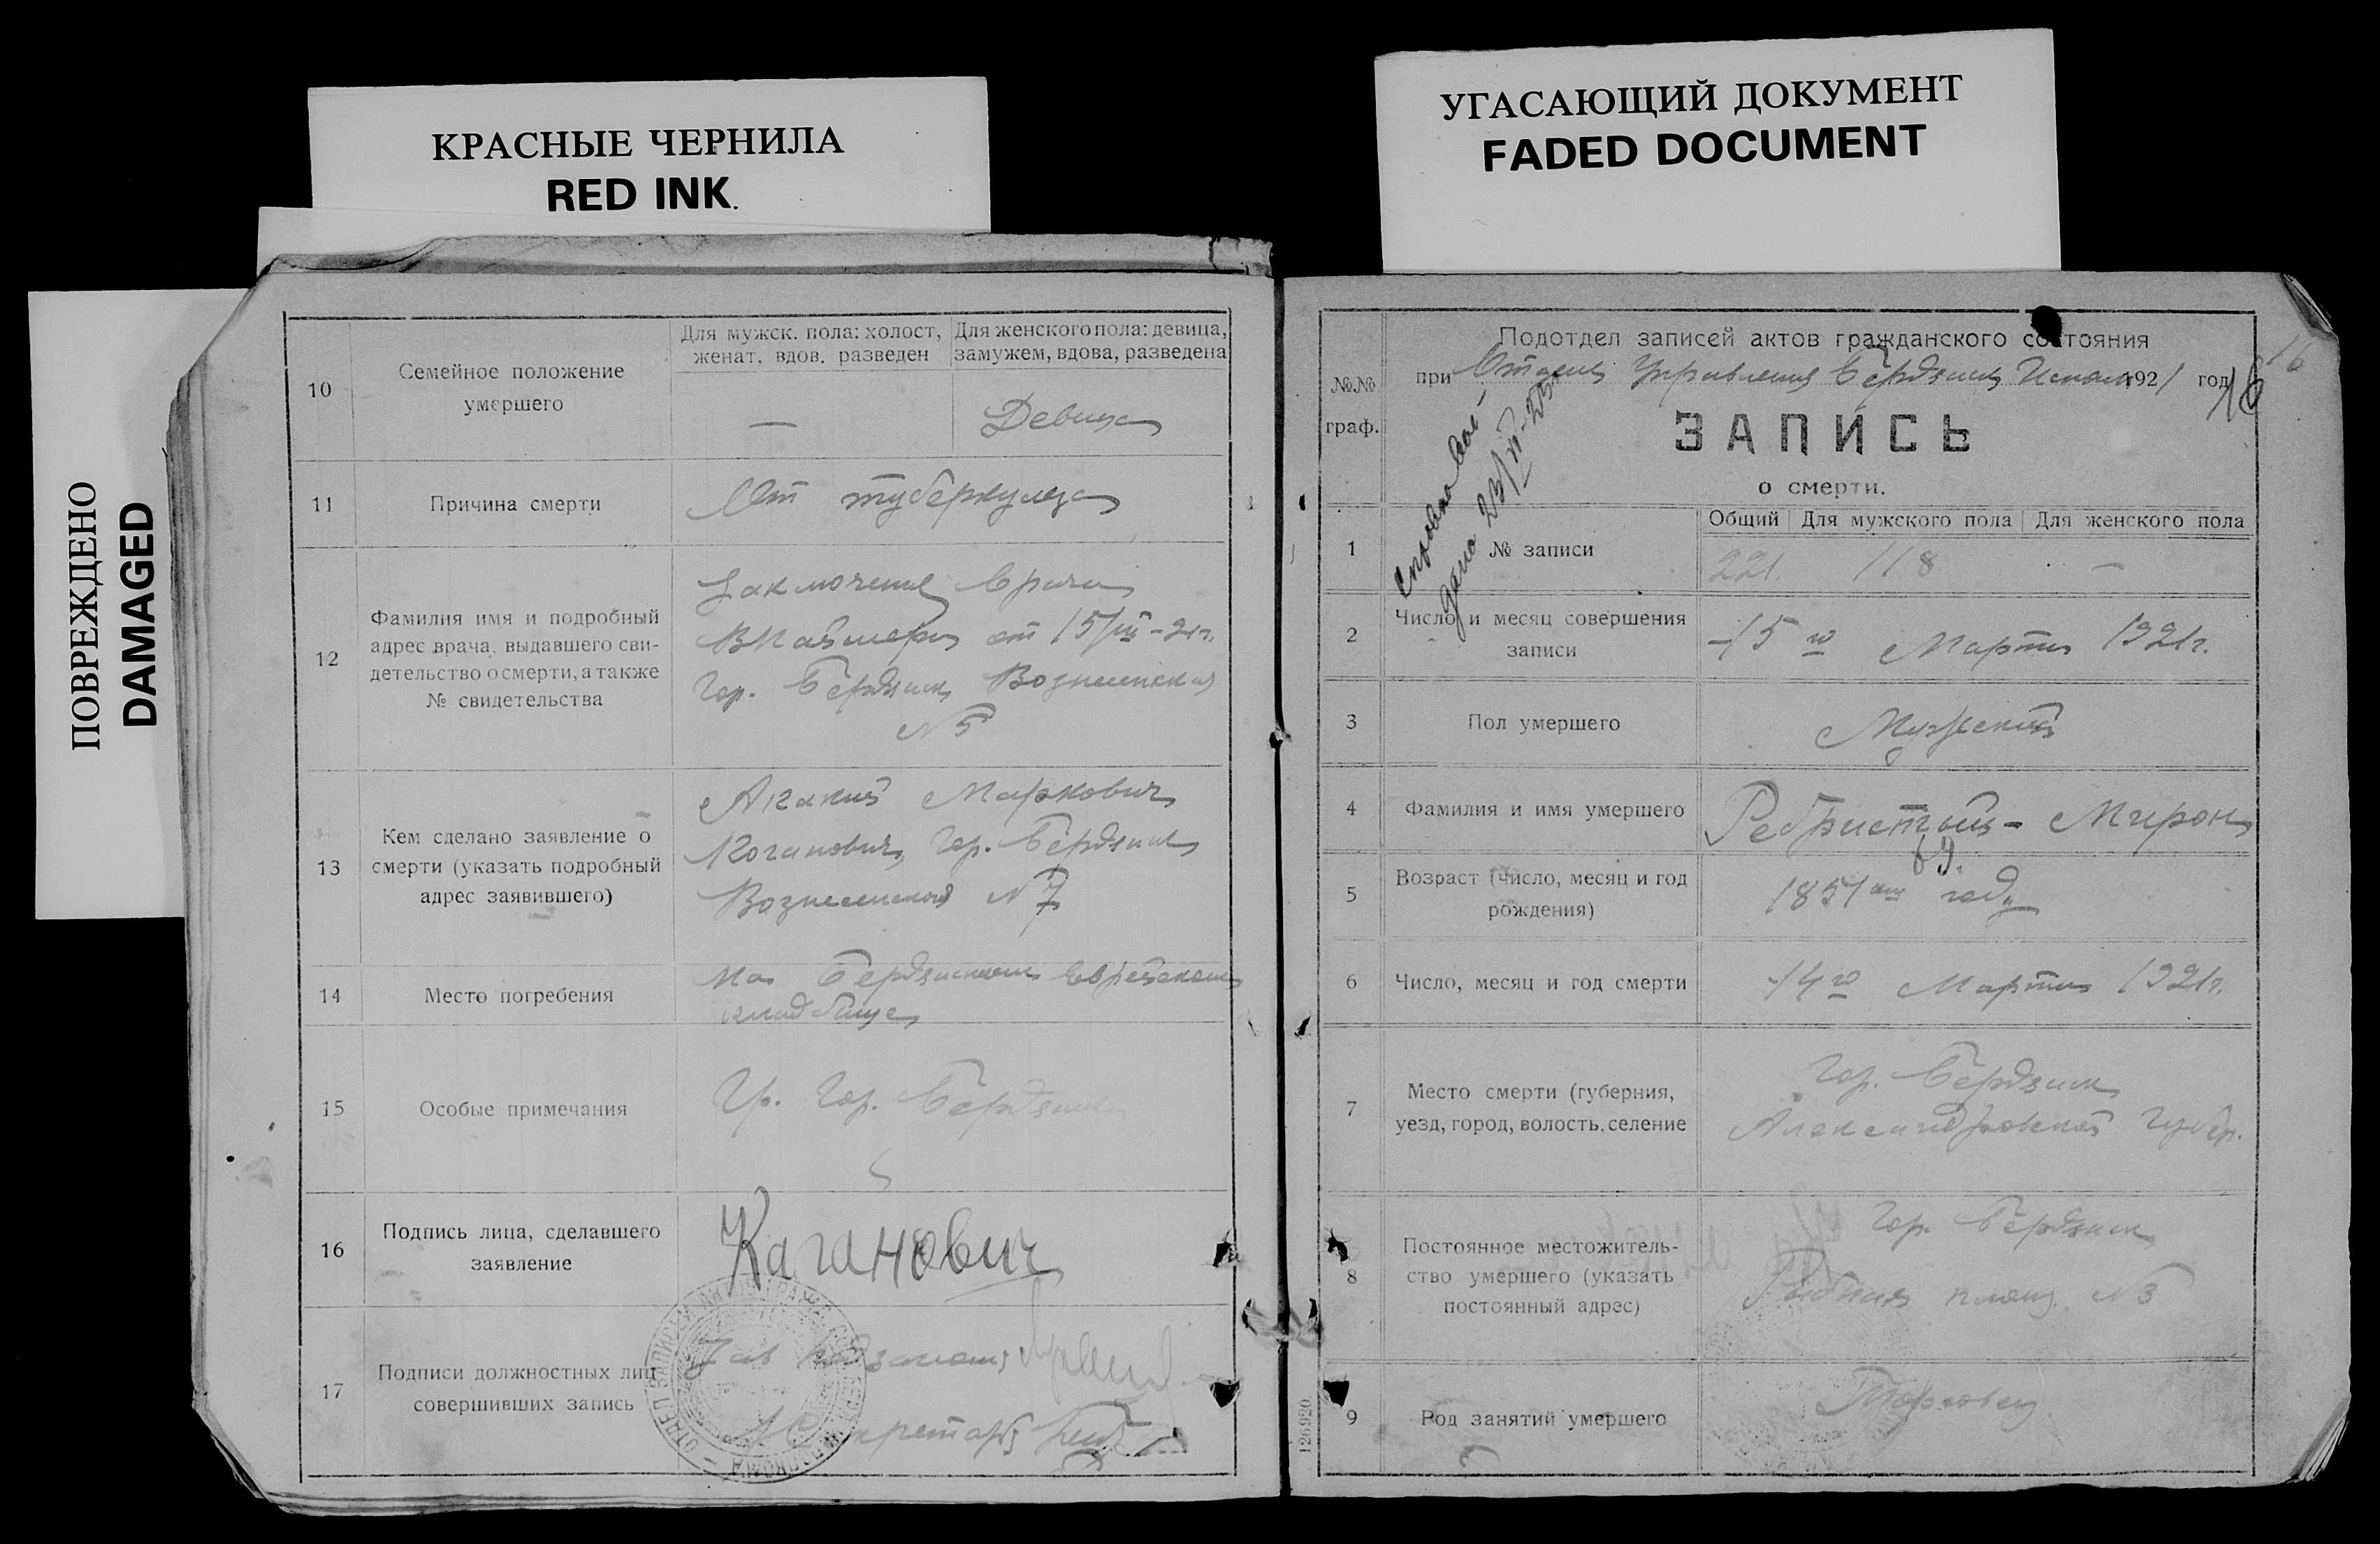 КРАСНЫЕ ЧЕРНИЛА
RED INK.
УГАСАЮЩИЙ ДОКУМЕНТ
FADED DOCUMENT
ПОВРЕЖДЕНО
DAMAGED
10
Семейное положение
умершего
Для мужск. пола: холост,
женат, вдов, разведен
Для женского пола: девица,
замужем, вдова, разведена
—
Девица
11
Причина смерти
От туберкулеза
12
Фамилия имя и подробный
адрес врача, выдавшего сви-
детельство о смерти, а также
№ свидетельства
Заключение врача
от 15/III-21г.
Гор. Бердянск Вознесенская
№ 5
13
Кем сделано заявление о
смерти (указать подробный
адрес заявившего)
Маркович
Коганович, Гор. Бердянск
Вознесенская № 7
14
Место погребения
На Бердянском Еврейском
кладбище
15
Особые примечания
Гр. Гор. Бердянска
16
Подпись лица, сделавшего
заявление
Каганович
17
Подписи должностных лиц
совершивших запись
Зав
Секретарь
№№
граф.
Подотдел записей актов гражданского состояния
при Отделе Управления Бердянск Исполк 1921 год
16
16
ЗАПИСЬ
о смерти.
Справка
дана 23/
1
№ записи
Общий
Для мужского пола
Для женского пола
221
118
—
2
Число и месяц совершения
записи
15го Марта 1921г.
3
Пол умершего
Мужской
4
Фамилия и имя умершего
Ребристый - Мирон
5
Возраст (число, месяц и год
рождения)
69.
1851 году
6
Число, месяц и год смерти
14го Марта 1921г.
7
Место смерти (губерния,
уезд, город, волость, селение
Гор. Бердянск
Александровской Губер.
8
Постоянное местожитель-
ство умершего (указать
постоянный адрес)
Гор. Бердянск
площ. № 3
9
Род занятий умершего
Торговец
126920